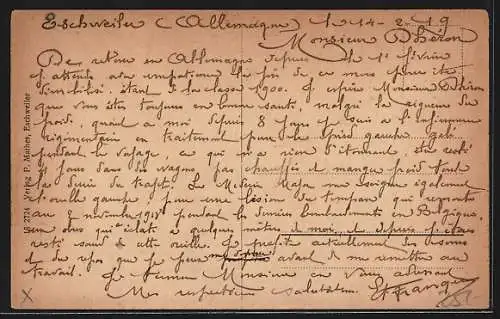 Eschweiler (Allemagne) le 14-2-19
Monsieur Dhéron
De retour en Allemagne depuis le 1er février
j'attends avec impatience la fin de ce mois pour être
démobilisé étant de la classe 1900. J'espère Monsieur Dhéron
que vous êtes toujours en bonne santé, malgré la rigueur du
froid, quant à moi depuis 8 jours je suis à l'infirmerie
régimentaire en traitement pour le pied gauche gelé
pendant le voyage, ce qui n'a rien d'étonnant, être resté
jours dans des wagons pas chauffés et manger froid toute
la durée du trajet. Le Médecin Major me soigne également
l'oreille gauche pour une lésion du tympan qui remonte
au 8 novembre 1918 pendant les derniers bombardements en Belgique,
un obus qui éclata à quelques mètres de moi, et depuis j'étais
resté sourd de cette oreille. Je profite actuellement des
et du repos que je peux avant de me remettre au
travail. Je termine Monsieur en vous adressant
Mes respectueuses salutations.
Us 2724 Verlag P. Meinen, Eschweiler